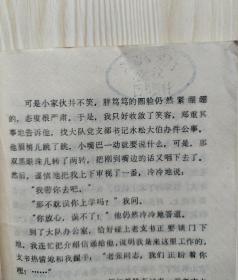 可是小家伙并不笑，胖笃笃的圆脸仍然紧绷绷
的，态度很严肃。于是，我只好收敛了笑容，郑重其
事地告诉他，找大队党支部书记水松大伯办件公事。
他眉梢儿跳了跳，小嘴巴一动就要说什么，可是，那
双黑眼珠儿转了两转，把刚到嘴边的话又咽下去了。
然后，谨慎地把我上下审视了一番，冷冷地说：
“我带你去吧。”
“那不耽误你上学吗？”我问。
“你放心，误不了！”他仍然冷冷地答道。
到了大队办公室，恰好碰上老支书正要锁门下
地，我连忙把介绍信递给他，说明我是来这里工作的，
支书热情地和我握手：“老张同志，我们正盼着你